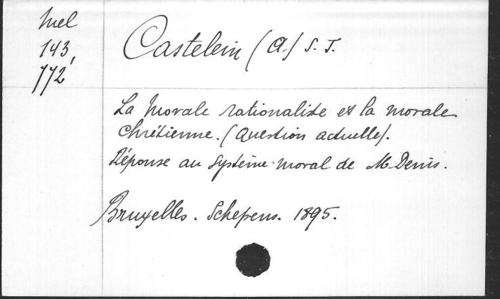 Mel
143,
772
Castelein (A.) S. J.
La Morale rationaliste et la morale
chrétienne. (Question actuelle).
Réponse au Système moral de M. Denis.
Bruxelles. Schepens. 1895.